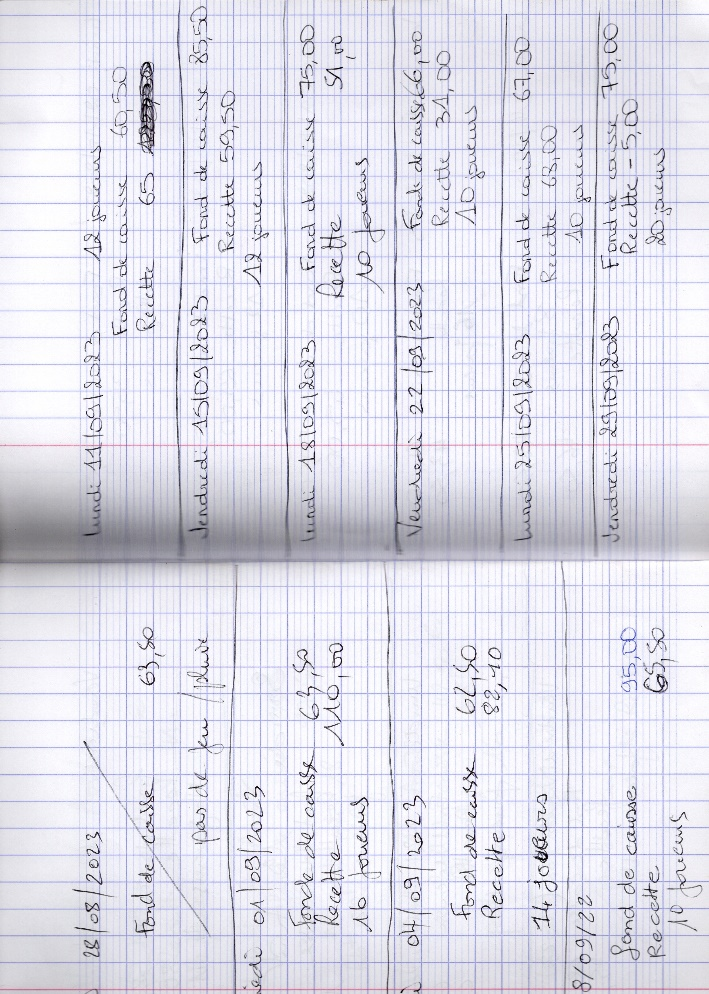 28/08/2023
Fond de caisse 63,50
pas de jeu / pluie
01/09/2023
Fonde de caisse 63,50
Recette 110,00
16 joueurs
04/09/2023
Fond de caisse 62,50
Recette 82,10
14 joueurs
8/09/22
fond de caisse 95,00
Recette 65,50
10 joueurs
Lundi 11/09/2023 12 joueurs
Fond de caisse 60,50
Recette 65
Vendredi 15/09/2023 Fond de caisse 85,50
Recette 59,50
12 joueurs
Lundi 18/09/2023 Fond de caisse 75,00
Recette 51,00
10 joueurs
Vendredi 22/09/2023 Fonds de caisse 66,00
Recette 31,00
10 joueurs
Lundi 25/09/2023 Fond de caisse 67,00
Recette 63,00
10 joueurs
Vendredi 29/09/2023 Fond de caisse 75,00
Recette -5,00
20 joueurs